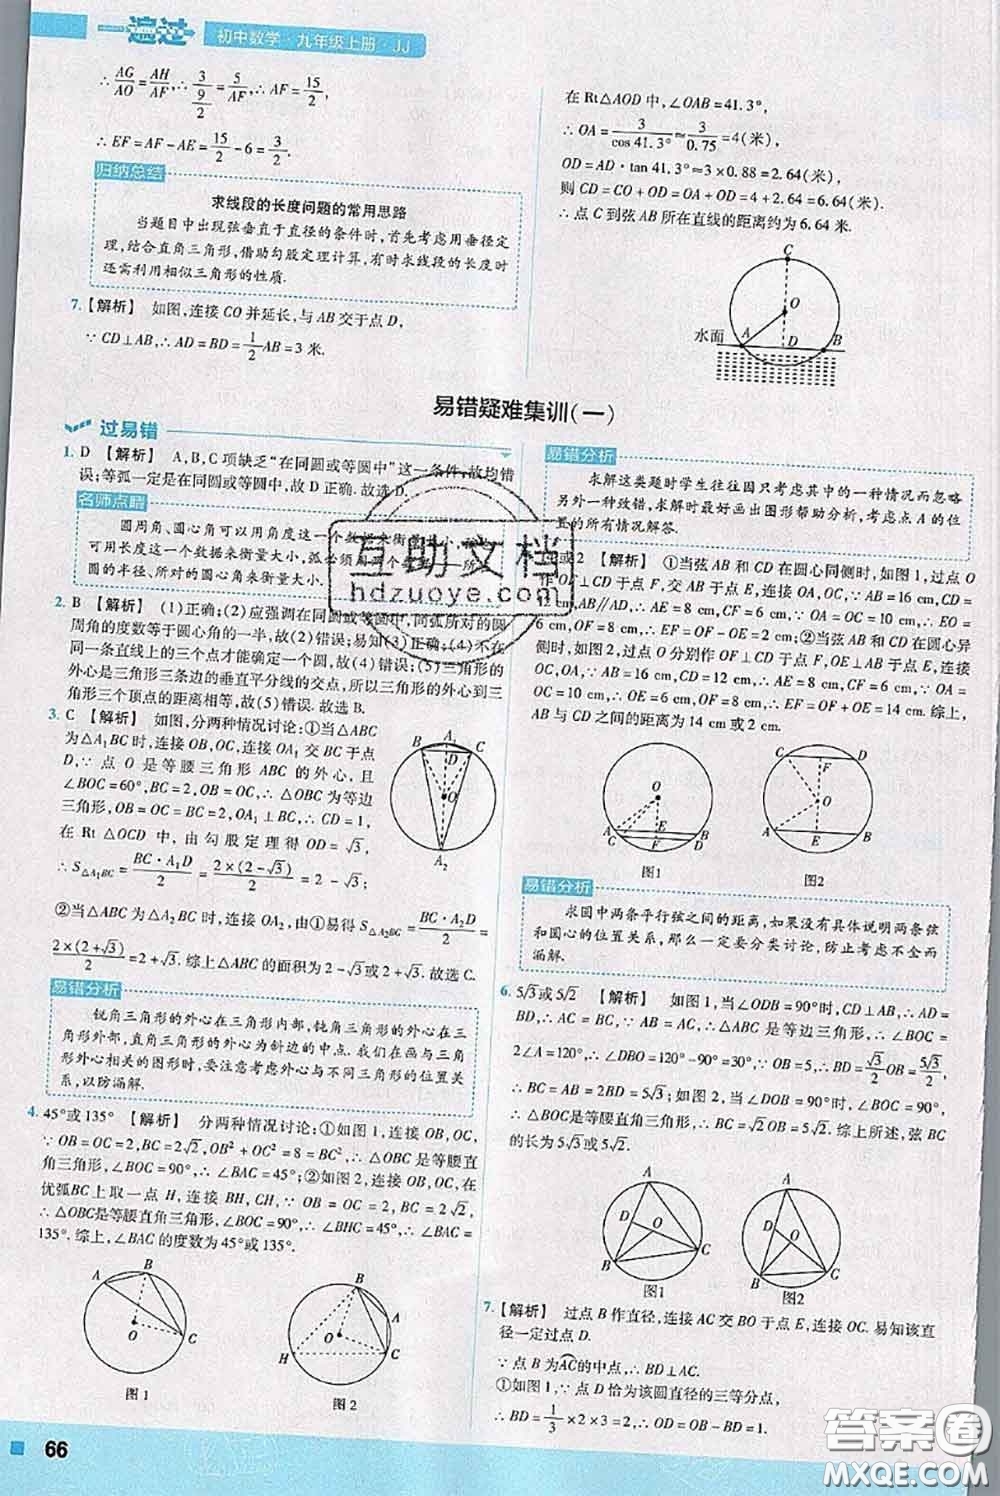 一遍过 初中数学·九年级上册·JJ
∴ AG/AO = AH/AF, ∴ 3/(9/2) = 5/AF, ∴ AF = 15/2,
∴ EF = AF - AE = 15/2 - 6 = 3/2.
归纳总结
求线段的长度问题的常用思路
当题目中出现弦垂直于直径的条件时,首先考虑用垂径定
理,结合直角三角形,借助勾股定理计算,有时求线段的长度时
还需利用相似三角形的性质.
7.【解析】 如图,连接 CO 并延长,与 AB 交于点 D,
∵ CD⊥AB, ∴ AD = BD = 1/2 AB = 3 米.
在 Rt△AOD 中, ∠OAB = 41.3°,
∴ OA = 3/cos 41.3° ≈ 3/0.75 = 4(米),
OD = AD · tan 41.3° ≈ 3 × 0.88 = 2.64(米),
则 CD = CO + OD = OA + OD = 4 + 2.64 = 6.64(米).
∴ 点 C 到弦 AB 所在直线的距离约为 6.64 米.
C
O
水面 A D B
易错疑难集训(一)
过易错
1. D 【解析】 A,B,C 项缺乏“在同圆或等圆中”这一条件,故均错
误;等弧一定是在同圆或等圆中,故 D 正确. 故选 D.
名师点睛
圆周角、圆心角可以用角度这一个数据来衡量大小,
可用长度这一个数据来衡量大小,弧必须用两个
圆的半径、所对的圆心角)来衡量大小.
2. B 【解析】 (1)正确;(2)应强调在同圆或等圆中,同弧所对的圆
周角的度数等于圆心角的一半,故(2)错误;易知(3)正确;(4)不在
同一条直线上的三个点才能确定一个圆,故(4)错误;(5)三角形的
外心是三角形三条边的垂直平分线的交点,所以三角形的外心到三
角形三个顶点的距离相等,故(5)错误. 故选 B.
3. C 【解析】 如图,分两种情况讨论:①当△ABC
为△A₁BC 时,连接 OB,OC,连接 OA₁ 交 BC 于点
D, ∵ 点 O 是等腰三角形 ABC 的外心,且
∠BOC = 60°, BC = 2, OB = OC, ∴ △OBC 为等边
三角形, OB = OC = BC = 2, OA₁⊥BC, ∴ CD = 1,
在 Rt △OCD 中,由勾股定理得 OD = √3,
∴ S△A₁BC = BC·A₁D/2 = 2×(2-√3)/2 = 2 - √3;
②当△ABC 为△A₂BC 时,连接 OA₂,由①易得 S△A₂BC = BC·A₂D/2 =
2×(2+√3)/2 = 2 + √3. 综上△ABC 的面积为 2 - √3或 2 + √3. 故选 C.
B A₁ C
D
O
A₂
易错分析
锐角三角形的外心在三角形内部,钝角三角形的外心在三
角形外部,直角三角形的外心为斜边的中点. 我们在画与三角
形外心相关的图形时,要注意考虑外心与不同三角形的位置关
系,以防漏解.
4. 45°或 135° 【解析】 分两种情况讨论:①如图 1,连接 OB,OC,
∵ OB = OC = 2, BC = 2√2, OB² + OC² = 8 = BC², ∴ △OBC 是等腰直
角三角形, ∠BOC = 90°, ∴ ∠BAC = 45°;②如图 2,连接 OB,OC,在
优弧BC上取一点 H,连接 BH,CH, ∵ OB = OC = 2, BC = 2√2,
∴ △OBC是等腰直角三角形, ∠BOC = 90°, ∴ ∠BHC = 45°, ∴ ∠BAC =
135°. 综上, ∠BAC 的度数为 45°或 135°.
A B O C
图 1
B A O H C
图 2
易错分析
求解这类题时学生往往因只考虑其中的一种情况而忽略
另外一种致错,求解时最好画出图形帮助分析,考虑点 A 的位
置的所有情况解答.
或 2 【解析】 ①当弦 AB 和 CD 在圆心同侧时,如图 1,过点 O
作 OF⊥CD 于点 F,交 AB 于点 E,连接 OA,OC,
∴ AE = 8 cm, CF = 6 cm, ∵ OA = OC = 10 cm, ∴ EO =
6 cm, OF = 8 cm, ∴ EF = OF - OE = 2 cm;②当弦 AB 和 CD 在圆心异
侧时,如图 2,过点 O 分别作 OF⊥CD 于点 F, OE⊥AB 于点 E,连接
OA,OC, ∵ AB = 16 cm, CD = 12 cm, ∴ AE = 8 cm, CF = 6 cm, ∵ OA =
OC = 10 cm, ∴ EO = 6 cm, OF = 8 cm, ∴ EF = OF + OE = 14 cm. 综上,
AB 与 CD 之间的距离为 14 cm 或 2 cm.
O A E B C F D
图1
C F D O A E B
图2
易错分析
求圆中两条平行弦之间的距离,如果没有具体说明两条弦
和圆心的位置关系,那么一定要分类讨论,防止考虑不全而
漏解.
6. 5√3或 5√2 【解析】 如图 1,当∠ODB = 90°时, CD⊥AB, ∴ AD =
BD, ∴ AC = BC. ∵ AB = AC, ∴ △ABC 是等边三角形, ∴ ∠BOC =
2∠A = 120°, ∴ ∠DBO = 120° - 90° = 30°, ∵ OB = 5, ∴ BD = √3/2 OB = 5√3/2,
∴ BC = AB = 2BD = 5√3. 如图 2,当 ∠DOB = 90°时, ∠BOC = 90°,
∴ △BOC是等腰直角三角形, ∴ BC = √2OB = 5√2. 综上所述,弦 BC
的长为 5√3或 5√2.
A D O B C
图1
A D O B C
图2
7.【解析】 过点 B 作直径,连接 AC 交 BO 于点 E,连接 OC. 易知该直
径一定过点 D.
∵ 点 B 为AC的中点, ∴ BD⊥AC.
①如图 1, ∵ 点 D 恰为该圆直径的三等分点,
∴ BD = 1/3 × 2 × 3 = 2, ∴ OD = OB - BD = 1.
66
互助文档
hdzuoye.com
答案圈
MXQE.COM